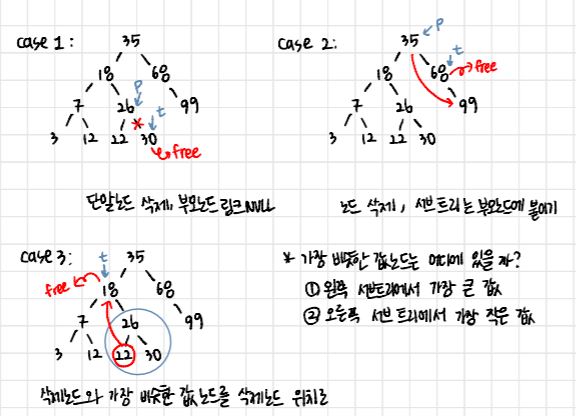 case 1:
35 p
18 68
p
7 26 99
t
3 12 22 30
free
단말노드 삭제, 부모노드 링크 NULL
case 2:
35 p
t
18 68 free
7 26 99
3 12 22 30
노드 삭제, 서브트리는 부모노드에 붙이기
case 3:
t 35
free 18 68
7 26 99
3 12 22 30
삭제노드와 가장 비슷한 값 노드를 삭제노드 위치로
* 가장 비슷한 값노드는 어디에 있을까?
① 왼쪽 서브트리에서 가장 큰 값
② 오른쪽 서브트리에서 가장 작은 값